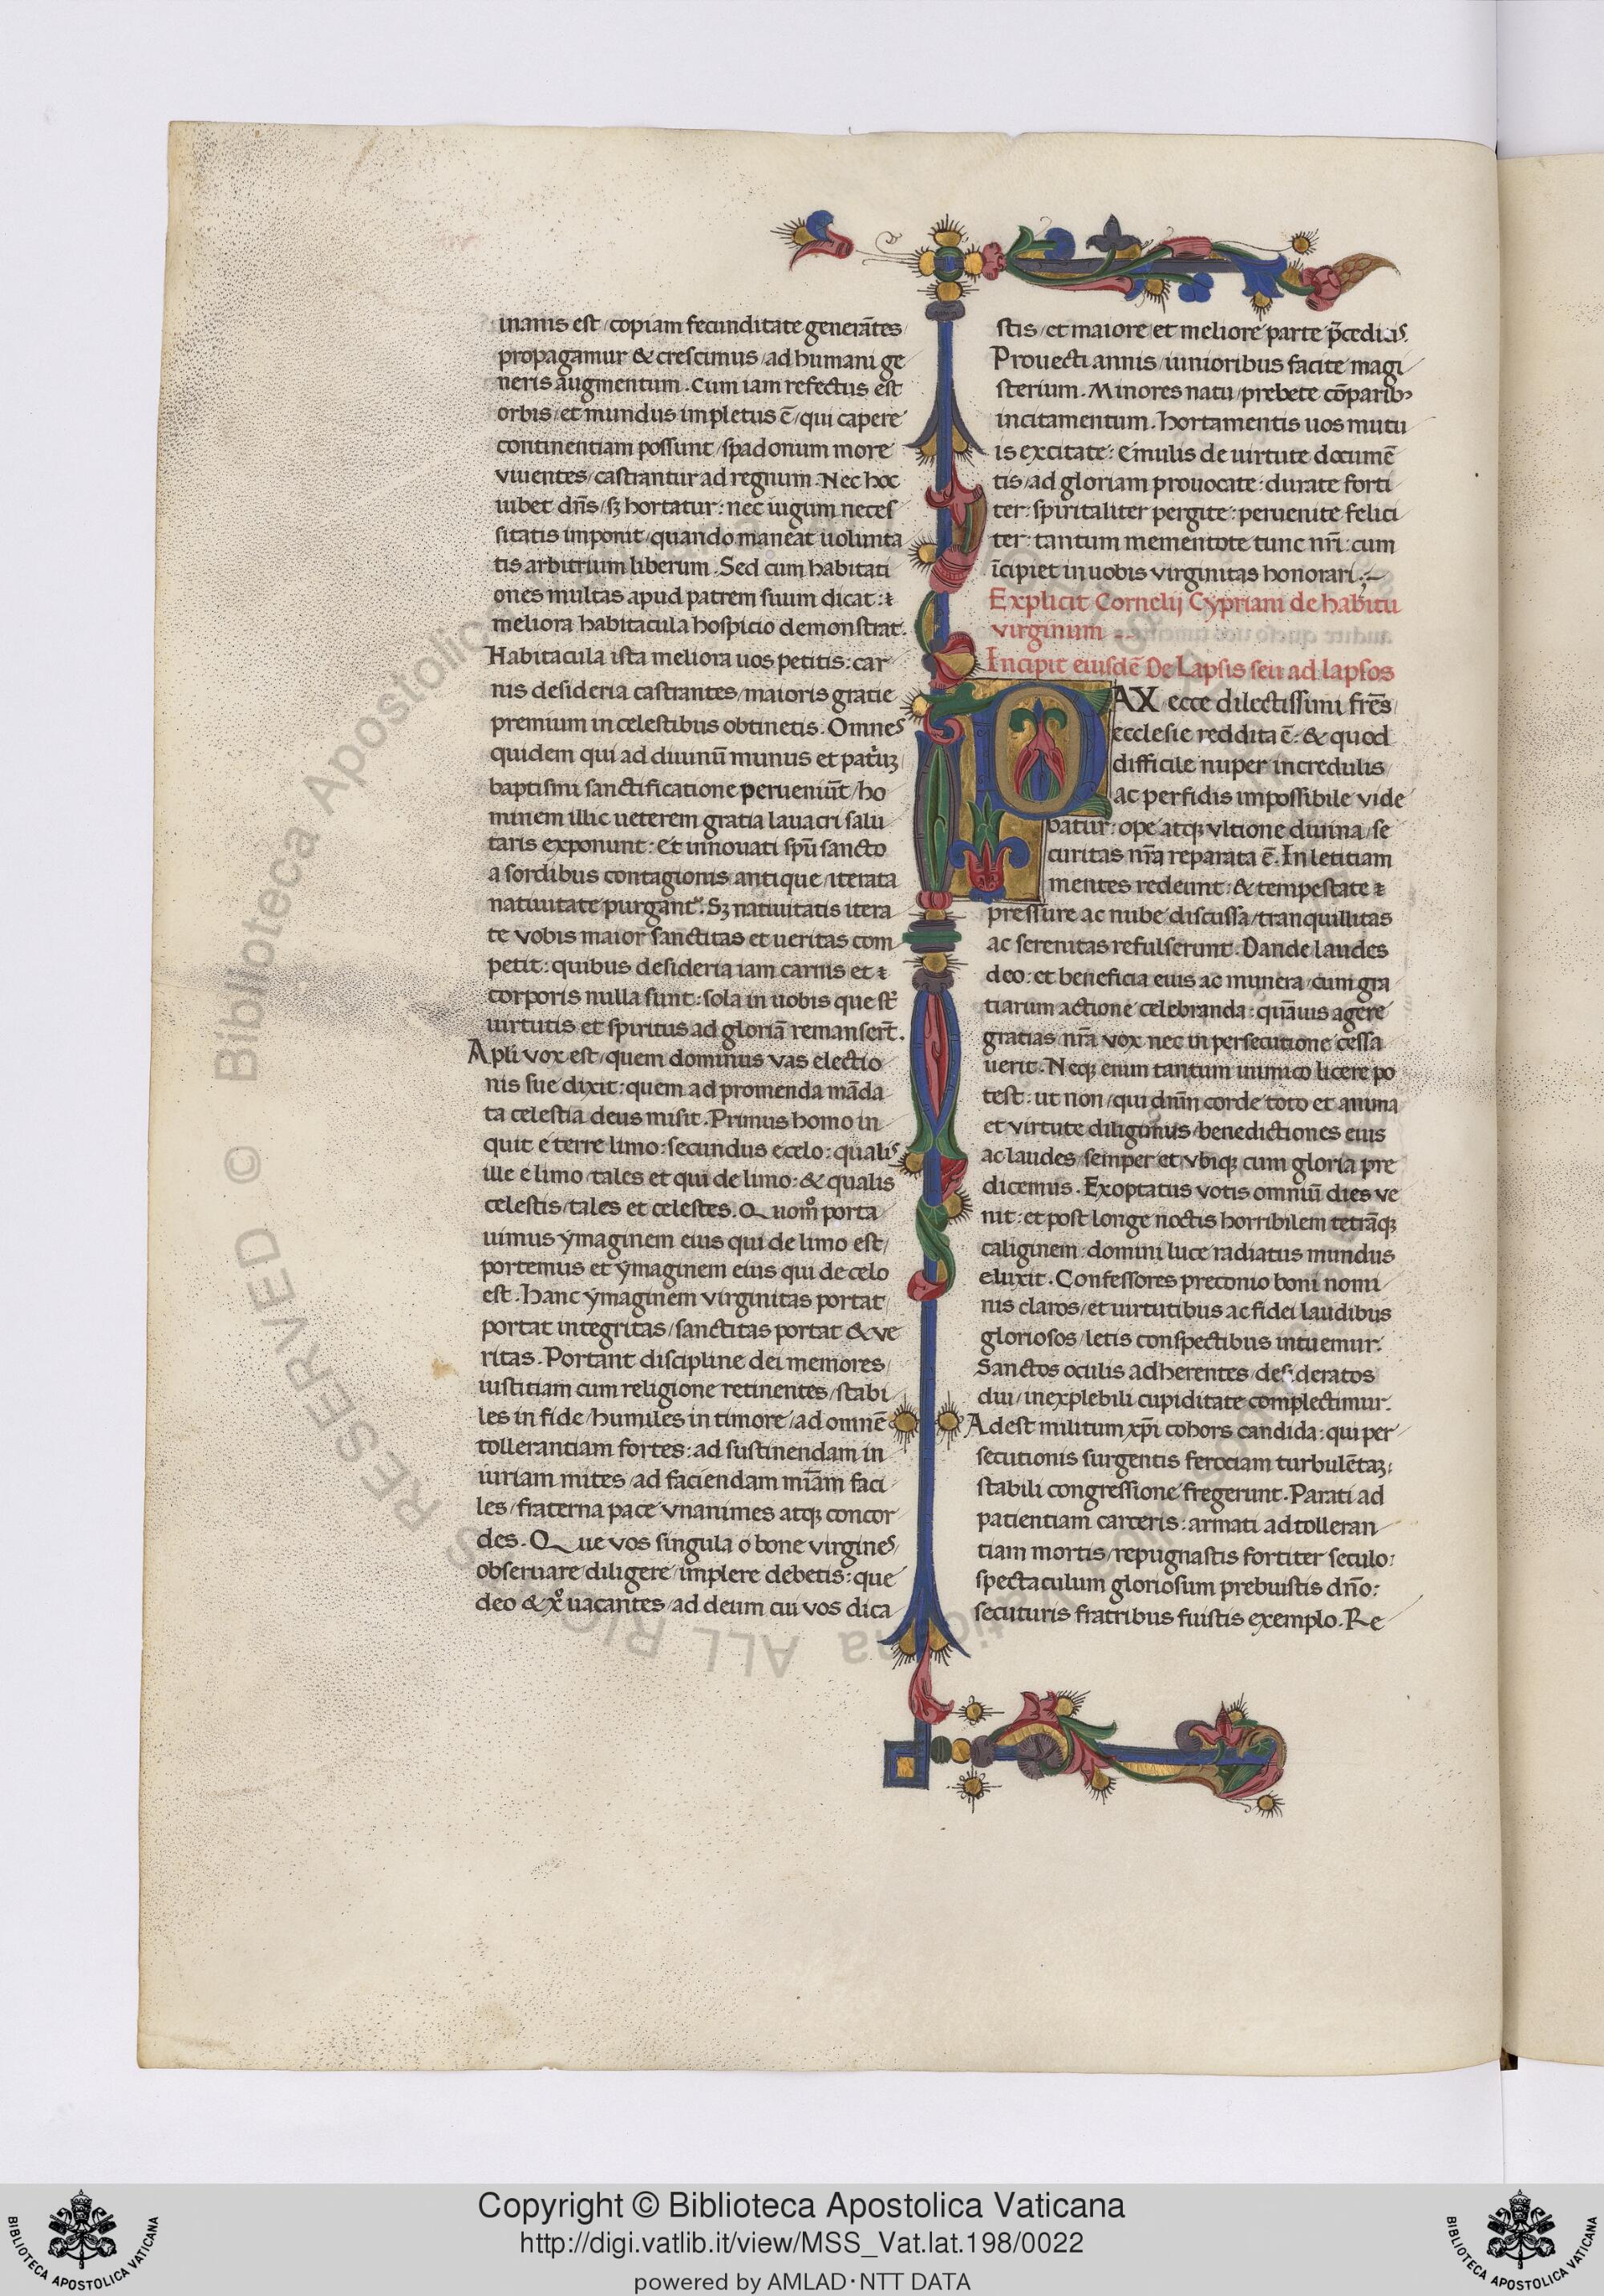 inanis est / copiam fecunditate generãtes
propagamur & crescimus / ad humani ge
neris augmentum. Cum iam refectus est
orbis / et mundus impletus ẽ / qui capere
continentiam possunt / spadonum more
viuentes / castrantur ad regnum. Nec hoc
iubet dñs / sꝫ hortatur: nec iugum neces
sitatis imponit / quando maneat uolunta
tis arbitrium liberum. Sed cum habitati
ones multas apud patrem suum dicat: ⁊
meliora habitacula hospicio demonstrat.
Habitacula ista meliora uos petitis: car
nis desideria castrantes / maioris gratie
premium in celestibus obtinetis. Omnes
quidem qui ad diuinũ munus et patriũ
baptismi sanctificatione perueniũt / ho
minem illic ueterem gratia lauacri salu
taris exponunt: Et innouati spũ sancto
a sordibus contagionis antique / iterata
natiuitate purgant᷑. Sꝫ natiuitatis itera
te vobis maior sanctitas et ueritas com
petit: quibus desideria iam carnis et ⁊
corporis nulla sunt: sola in uobis que st̃
uirtutis et spiritus ad gloriã remanser̃t.
Apli vox est / quem dominus vas electio
nis sue dixit: quem ad promenda mãda
ta celestia deus misit. Primus homo in
quit e terre limo: secundus e celo: qualis
ille e limo / tales et qui de limo: & qualis
celestis / tales et celestes. Quom̊ porta
uimus ymaginem eius qui de limo est /
portemus et ymaginem eius qui de celo
est. Hanc ymaginem virginitas portat
portat integritas / sanctitas portat & ve
ritas. Portant discipline dei memores /
iustitiam cum religione retinentes / stabi
les in fide / humiles in timore / ad omnẽ
tollerantiam fortes: ad sustinendam in
iuriam mites / ad faciendam mĩam faci
les / fraterna pace vnanimes atqꝫ concor
des. Que vos singula o bone virgines /
obseruare / diligere / implere debetis: que
deo & xp̊ uacantes / ad deum cui vos dica
stis / et maiore et meliore parte p̃ceditis.
Prouecti annis / iunioribus facite magi
sterium. Minores natu / prebete cõparibꝰ
incitamentum. Hortamentis uos mutu
is excitate: Emulis de uirtute documẽ
tis / ad gloriam prouocate: durate forti
ter: spiritaliter pergite: peruenite felici
ter: tantum mementote tunc nr̃i: cum
ĩcipiet in uobis virginitas honorari.:~
Explicit Cornelij Cypriani de habitu
virginum ..
Incipit eiusdẽ De Lapsis seu ad lapsos
PAX ecce dilectissimi frẽs /
ecclesie reddita ẽ: & quod
difficile nuper incredulis /
ac perfidis impossibile vide
batur: ope atqꝫ vltione diuina / se
curitas nr̃a reparata ẽ. In letitiam
mentes redeunt: & tempestate ⁊
pressure ac nube discussa / tranquillitas
ac serenitas refulserunt. Dande laudes
deo: et beneficia eius ac munera / cum gra
tiarum actione celebranda: quãuis agere
gratias nr̃a vox nec in persecutione cessa
uerit. Neqꝫ enim tantum inimico licere po
test: ut non / qui dnm̃ corde toto et anima
et virtute diligimus / benedictiones eius
ac laudes / semper et vbiqꝫ cum gloria pre
dicemus. Exoptatus votis omniũ dies ve
nit: et post longe noctis horribilem tetrãqꝫ
caliginem: domini luce radiatus mundus
eluxit. Confessores preconio boni nomi
nis claros / et uirtutibus ac fidei laudibus
gloriosos / letis conspectibus intuemur.
Sanctos oculis adherentes / desideratos
diu / inexplebili cupiditate complectimur.
Adest militum xp̃i cohors candida: qui per
secutionis surgentis ferociam turbulẽtaꝫ:
stabili congressione fregerunt. Parati ad
patientiam carceris: armati ad tolleran
tiam mortis / repugnastis fortiter seculo:
spectaculum gloriosum prebuistis dño:
secuturis fratribus fuistis exemplo. Re
© Biblioteca Apostolica Vaticana ALL RIGHTS RESERVED
Copyright © Biblioteca Apostolica Vaticana
http://digi.vatlib.it/view/MSS_Vat.lat.198/0022
powered by AMLAD·NTT DATA
BIBLIOTECA APOSTOLICA VATICANA
BIBLIOTECA APOSTOLICA VATICANA